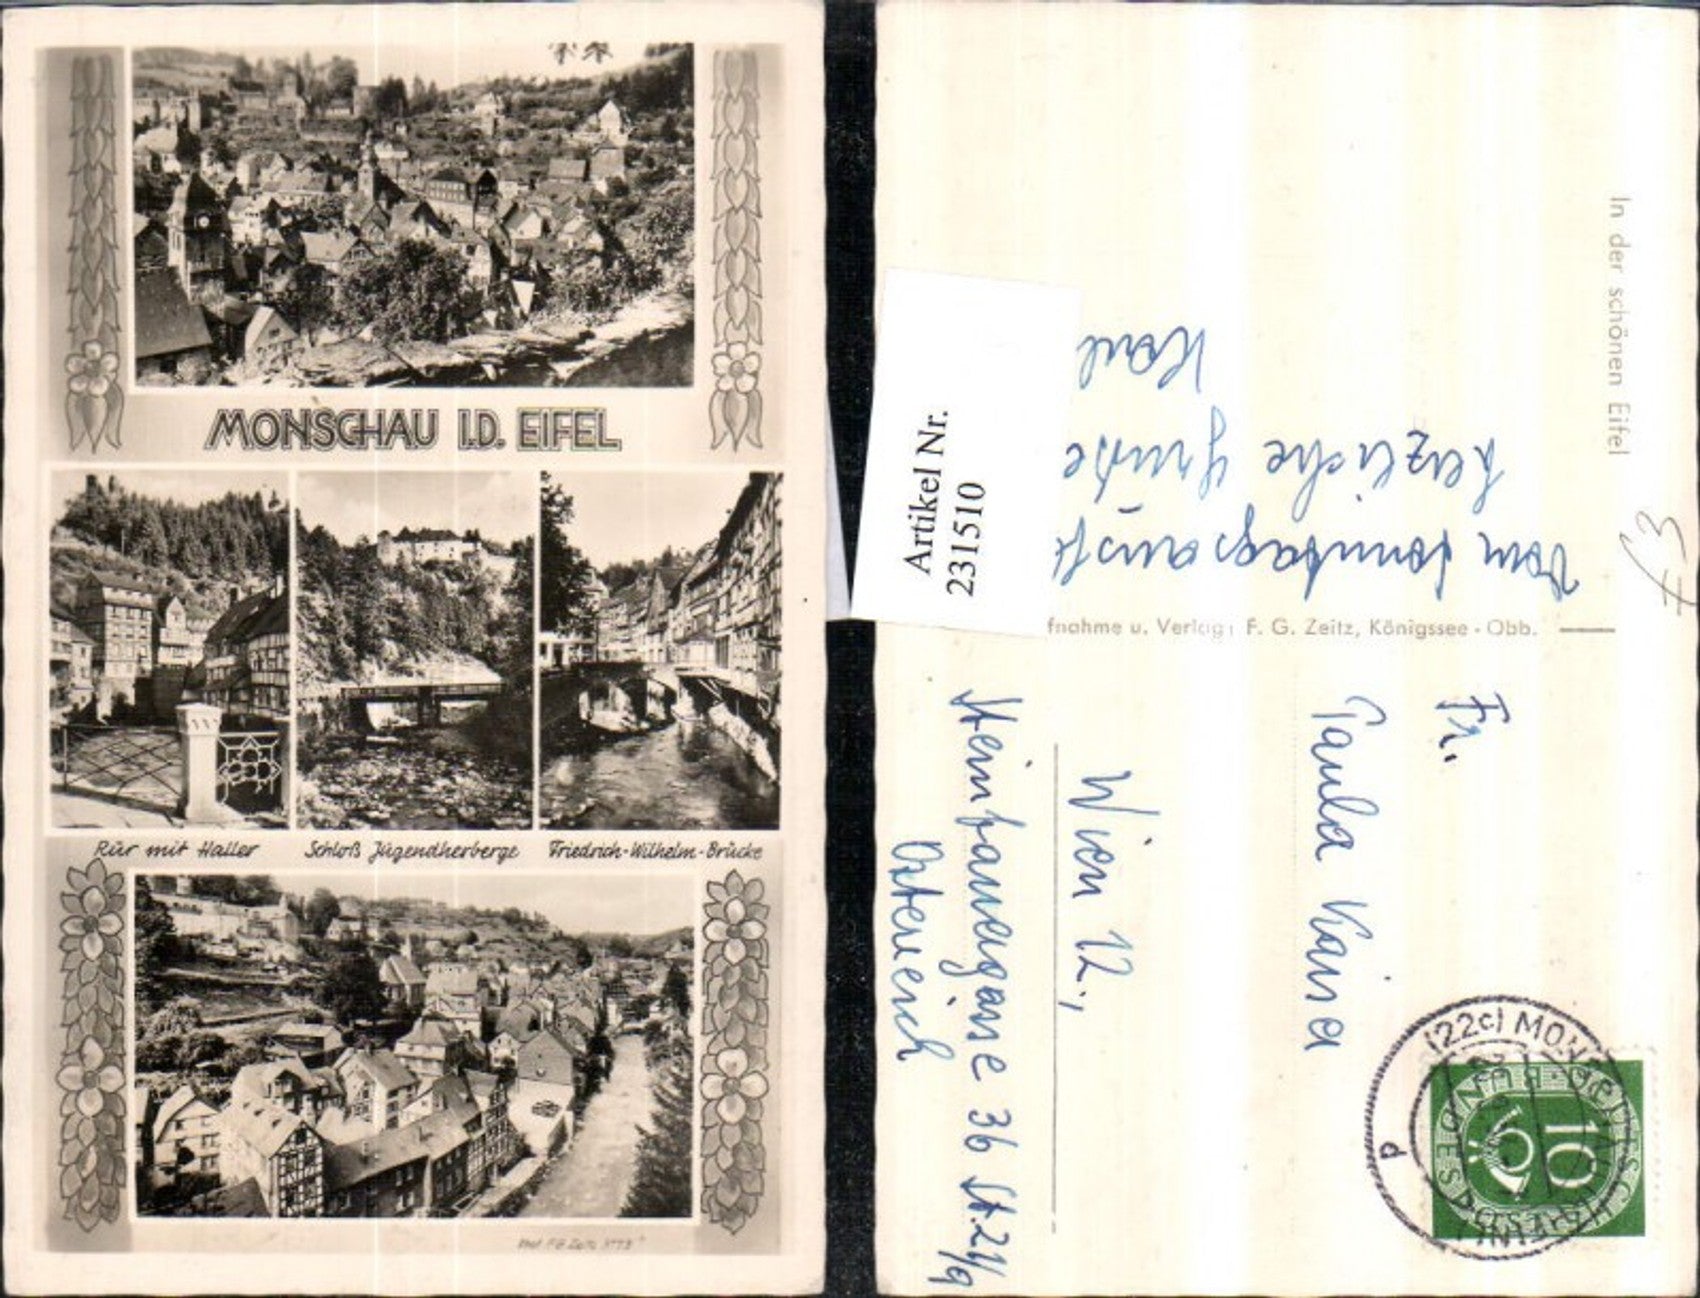 MONSCHAU I.D. EIFEL
Rur mit Haller
Schloß Jugendherberge
Friedrich-Wilhelm-Brücke
In der schönen Eifel
Artikel Nr.
231510
Vom Sonntagsausfl
herzliche Grüße
Karl
fnahme u. Verlag: F. G. Zeitz, Königssee - Obb.
Fr.
Paula Kaiser
Wien 12.,
Steinbauergasse 36 St. 21/9
Österreich
(22c) MONSCHAU
10
DEUTSCHE BUNDESPOST